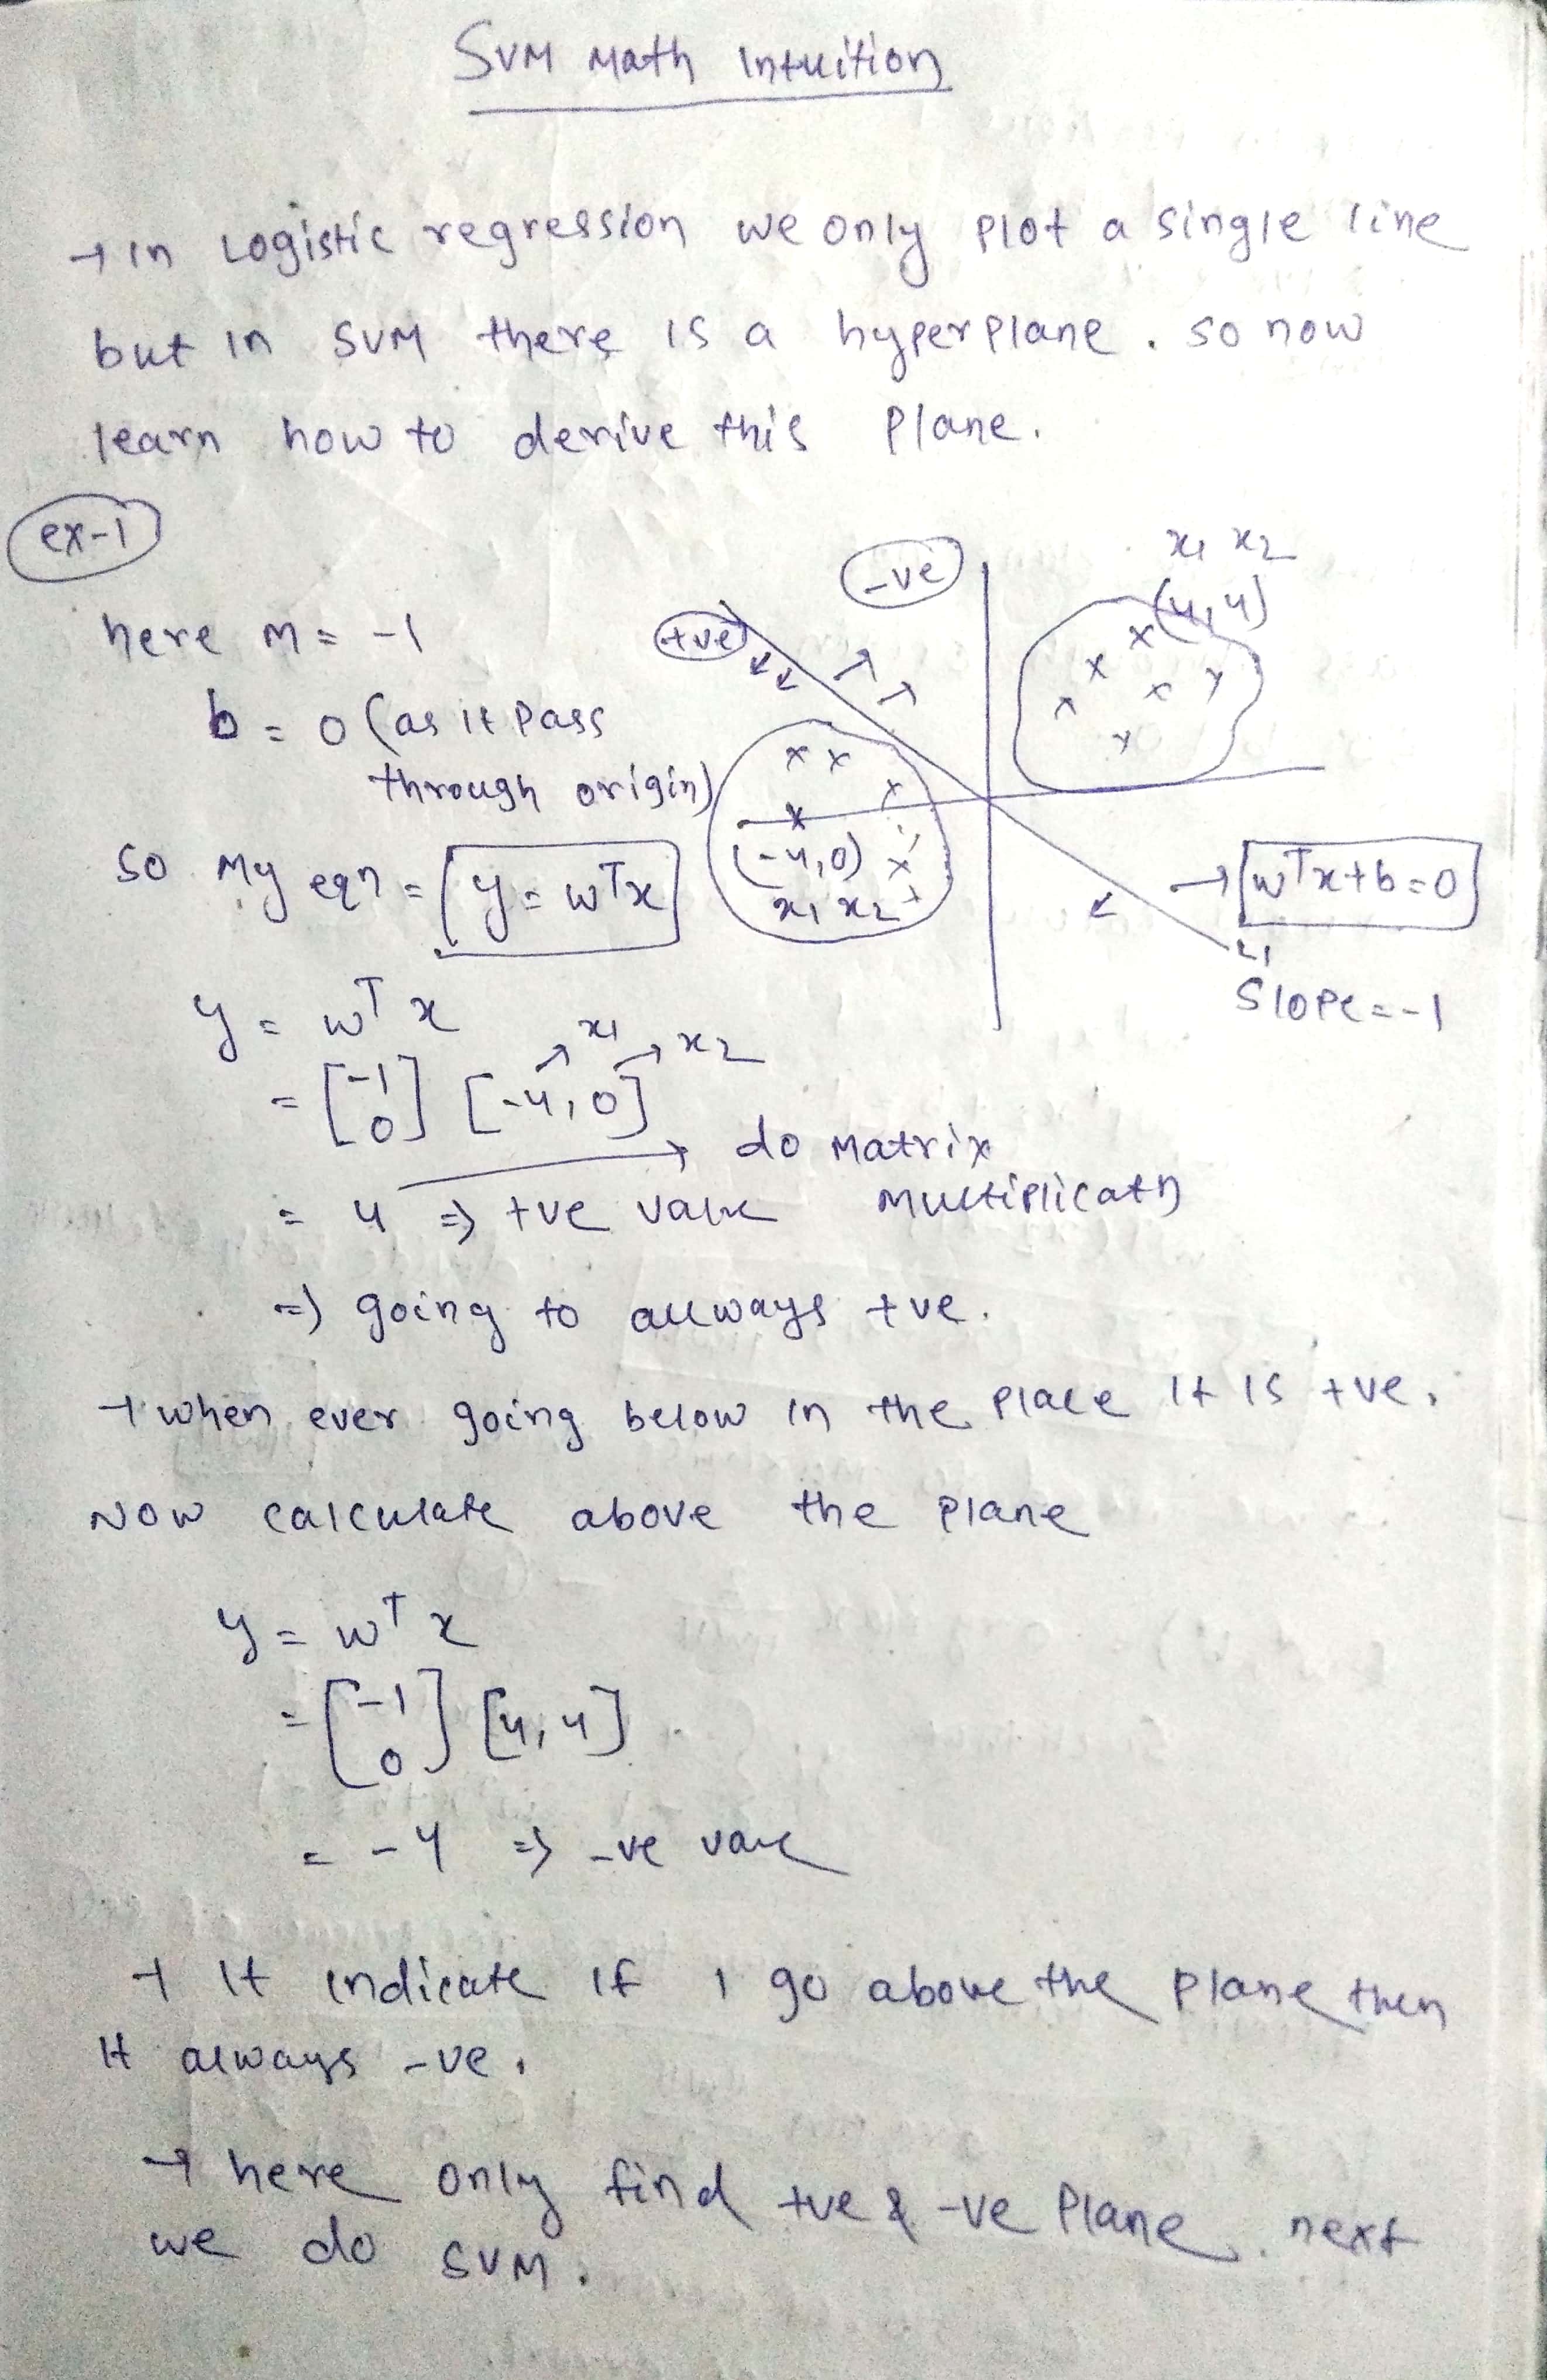 SVM Math Intuition
→ In Logistic regression we only plot a single line
but in SVM there is a hyperplane. so now
learn how to derive this plane.
ex-1
here m = -1
b = 0 (as it pass
through origin)
so my eqn = y = wᵀx
-ve
+ve
x1 x2
(4,4)
(-4,0)
x1 x2
→ wᵀx+b=0
Slope = -1
y = wᵀx
x1 x2
= [-1 0] [-4, 0]
→ do matrix
multiplicatn
= 4 => +ve value
=> going to allways +ve.
→ when ever going below in the place it is +ve.
Now calculate above the plane
y = wᵀx
= [-1 0] [4, 4]
= -4 => -ve value
→ It indicate if I go above the plane then
it always -ve.
→ here only find +ve & -ve Plane. next
we do SVM.